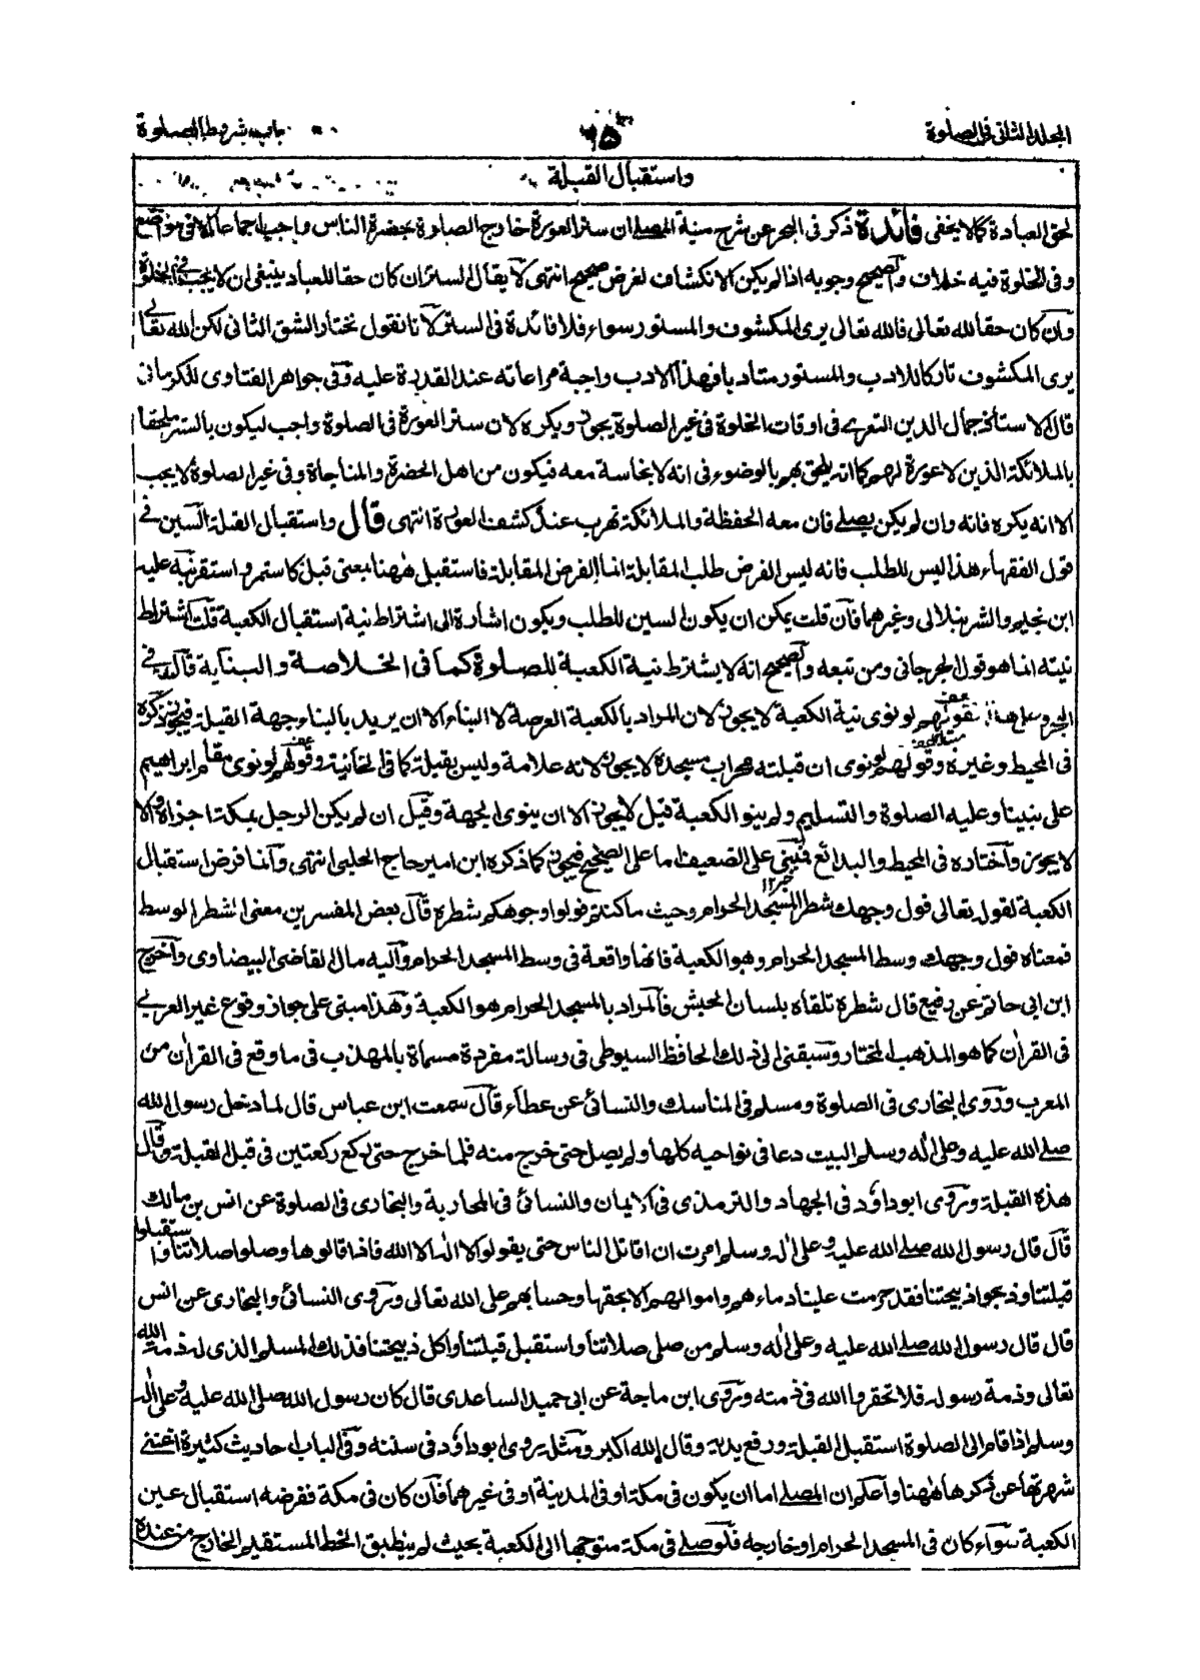 المجلد الثانى فى الصلوة
٦٥
باب شروط الصلوة
واستقبال القبلة
لحق العبادة كما لا يخفى فائدة ذكر فى البحر عن شرح منية المصلى ان ستر العورة خارج الصلوة بحضرة الناس واجب اجماعا الا فى مواضع
وفى الخلوة فيه خلاف والصحيح وجوبه اذا لم يكن الانكشاف لغرض صحيح انتهى لا يقال الستر ان كان حقا للعباد ينبغى ان لا يجب فى الخلوة
وان كان حقا لله تعالى فالله تعالى يرى المكشوف والمستور سواء فلا فائدة فى الستر لانا نقول نختار الشق الثانى لكن الله تعالى
يرى المكشوف تاركا للادب والمستور متادبا فهذا الادب واجبة مراعاته عند القدرة عليه وفى جواهر الفتاوى للكرمانى
قال الاستاذ جمال الدين التعرى فى اوقات الخلوة فى غير الصلوة يجوز ويكره لان ستر العورة فى الصلوة واجب ليكون بالستر ملحقا
بالملائكة الذين لا عورة لهم كما انه يلحق بهم بالوضوء فى انه لا نجاسة معه فيكون من اهل الحضرة والمناجاة وفى غير الصلوة لا يجب
الا انه يكره فانه وان لم يكن يصلى فان معه الحفظة والملائكة تهرب عند كشف العورة انتهى قال واستقبال القبلة السين فى
قول الفقهاء هذا ليس للطلب فانه ليس الفرض طلب المقابلة انما الفرض المقابلة فاستقبل ههنا بمعنى قبل كاستمر واستقر نبه عليه
ابن نجيم والشرنبلالى وغيرهما فان قلت يمكن ان يكون السين للطلب ويكون اشارة الى اشتراط نية استقبال الكعبة قلت اشتراط
نيته انما هو قول الجرجانى ومن تبعه والصحيح انه لا يشترط نية الكعبة للصلوة كما فى الخلاصة والبناية قال فى
البحر وعلى هذا فقولهم لو نوى نية الكعبة لا يجوز لان المراد بالكعبة العرصة لا البناء الا ان يريد بالبناء جهة القبلة فيجوز ذكره
فى المحيط وغيره وقولهم لو نوى ان قبلته محراب مسجده لا يجوز لانه علامة وليس بقبلة كما فى الخانية وقولهم لو نوى مقام ابراهيم
على نبينا وعليه الصلوة والتسليم ولم ينو الكعبة قيل لا يجوز الا ان ينوى الجهة وقيل ان لم يكن الرجل بمكة اجزاه والا
لا يجوز واختاره فى المحيط والبدائع مبنى على الضعيف اما على الصحيح فيجوز كما ذكره ابن امير حاج الحلبى انتهى وانما فرض استقبال
الكعبة لقوله تعالى فول وجهك شطر المسجد الحرام وحيث ما كنتم فولوا وجوهكم شطره قال بعض المفسرين معنى الشطر الوسط
فمعناه فول وجهك وسط المسجد الحرام وهو الكعبة فانها واقعة فى وسط المسجد الحرام واليه مال القاضى البيضاوى واخرج
ابن ابى حاتم عن رفيع قال شطره تلقاه بلسان الحبش فالمراد بالمسجد الحرام هو الكعبة وهذا مبنى على جواز وقوع غير العربى
فى القرأن كما هو المذهب المختار وسبقنى الى ذلك الحافظ السيوطى فى رسالة مفردة مسماة بالمهذب فى ما وقع فى القرأن من
المعرب وروى البخارى فى الصلوة ومسلم فى المناسك والنسائى عن عطاء قال سمعت ابن عباس قال لما دخل رسول الله
صلى الله عليه وعلى أله وسلم البيت دعا فى نواحيه كلها ولم يصل حتى خرج منه فلما خرج حتى ركع ركعتين فى قبل القبلة وقال
هذه القبلة وروى ابوداؤد فى الجهاد والترمذى فى الايمان والنسائى فى المحاربة والبخارى فى الصلوة عن انس بن مالك
قال قال رسول الله صلى الله عليه وعلى أله وسلم امرت ان اقاتل الناس حتى يقولوا لا اله الا الله فاذا قالوها وصلوا صلاتنا واستقبلوا
قبلتنا وذبحوا ذبيحتنا فقد حرمت علينا دماءهم واموالهم الا بحقها وحسابهم على الله تعالى وروى النسائى والبخارى عن انس
قال قال رسول الله صلى الله عليه وعلى أله وسلم من صلى صلاتنا واستقبل قبلتنا واكل ذبيحتنا فذلك المسلم الذى له ذمة الله
تعالى وذمة رسوله فلا تحقروا الله فى ذمته وروى ابن ماجة عن ابى حميد الساعدى قال كان رسول الله صلى الله عليه وعلى أله
وسلم اذا قام الى الصلوة استقبل القبلة ورفع يديه وقال الله اكبر ومثله روى ابوداؤد فى سننه وفى الباب احاديث كثيرة اغنى
شهرتها عن ذكرها ههنا واعلم ان المصلى اما ان يكون فى مكة او فى المدينة او فى غيرهما فان كان فى مكة ففرضه استقبال عين
الكعبة سواء كان فى المسجد الحرام او خارجه فلو صلى فى مكة متوجها الى الكعبة بحيث لم ينطبق الخط المستقيم الخارج من عنده